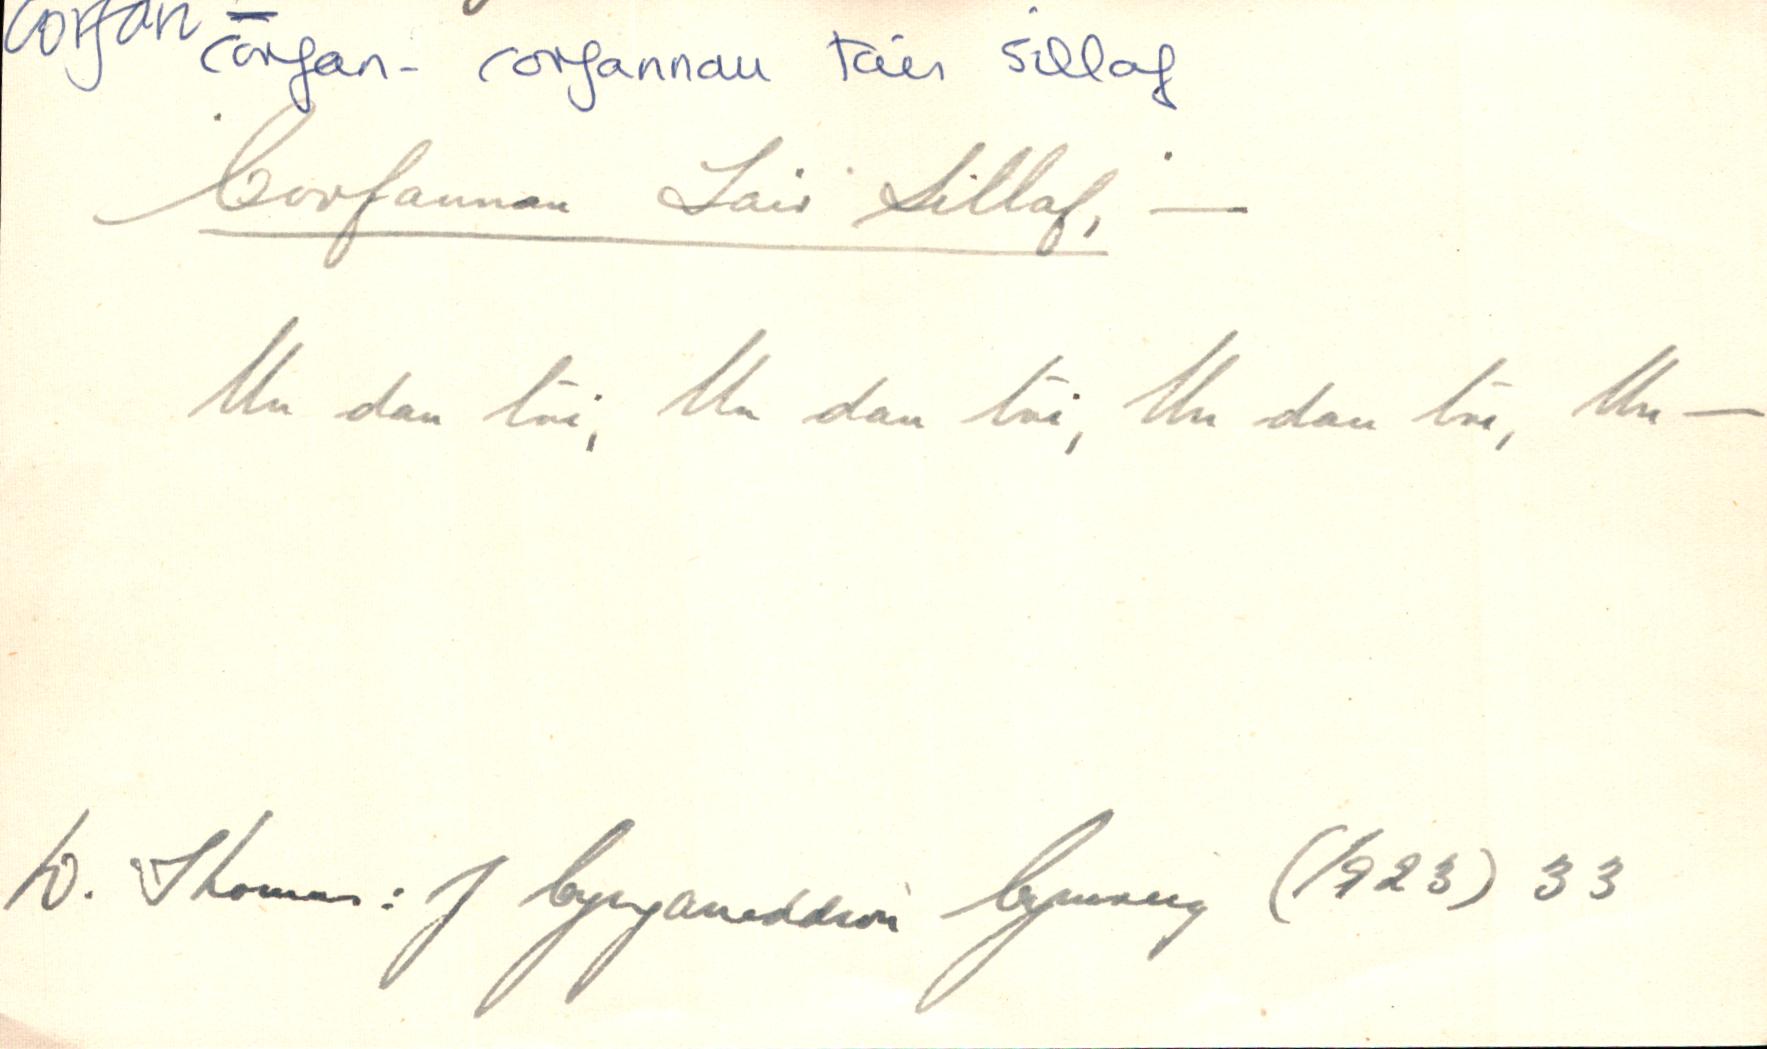 corfan
corfan - corfannau tair sillaf
Corfannau Tair Sillaf, —
Un dau tri, Un dau tri, Un dau tri, Un —
D. Thomas: Y Cynganeddion Cymreig (1923) 33